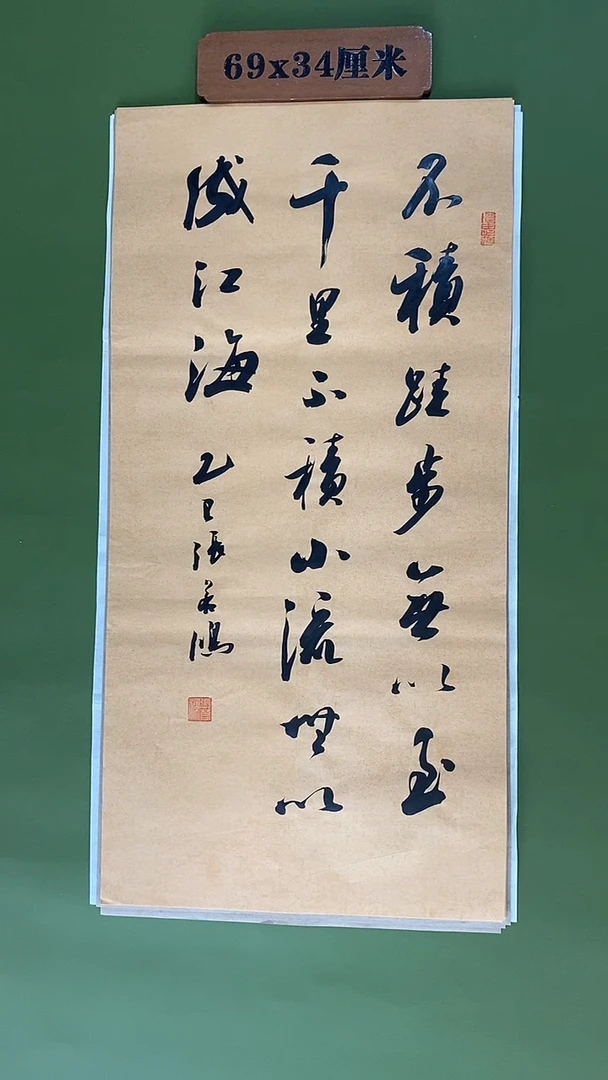 69x34厘米
不積跬步無以至
千里不積小流無以
成江海
乙巳張若鴻